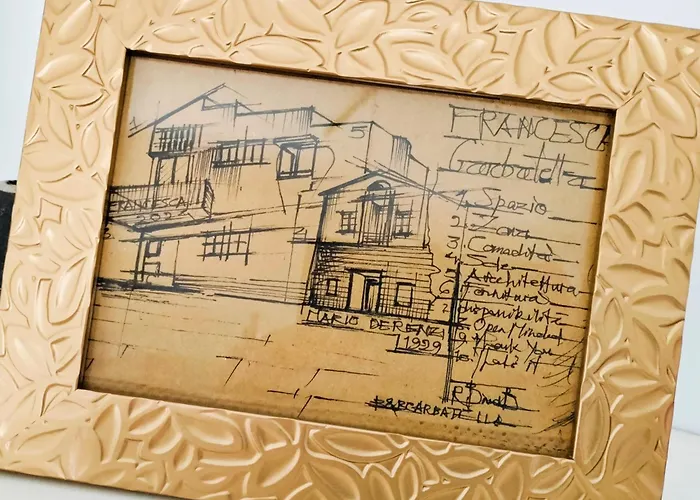 FRANCESCA
Garbatella
1. Spazio
2. Zona
3. Comodità
4. Sole
5. Architettura
6. Fornitura
7. disponibilità
8. Open Minded
9. Thank You
10. That's It
FRANCESCA
2022
3.
5
MARIO DE RENZI
1929